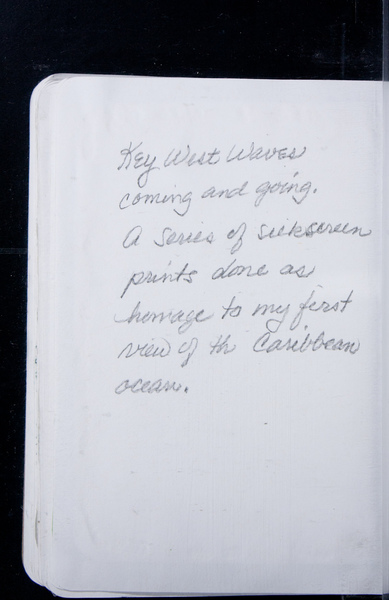 Key West Waves
coming and going.
A series of silkscreen
prints done as
homage to my first
view of th Caribbean
ocean.